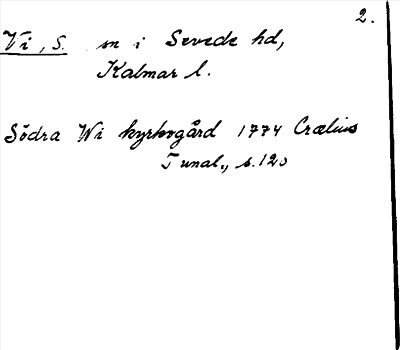 2.
Vi, S. sn i Sevede hd,
Kalmar l.
Södra Wi kyrkogård 1774 Crælius
Tunal., s. 120